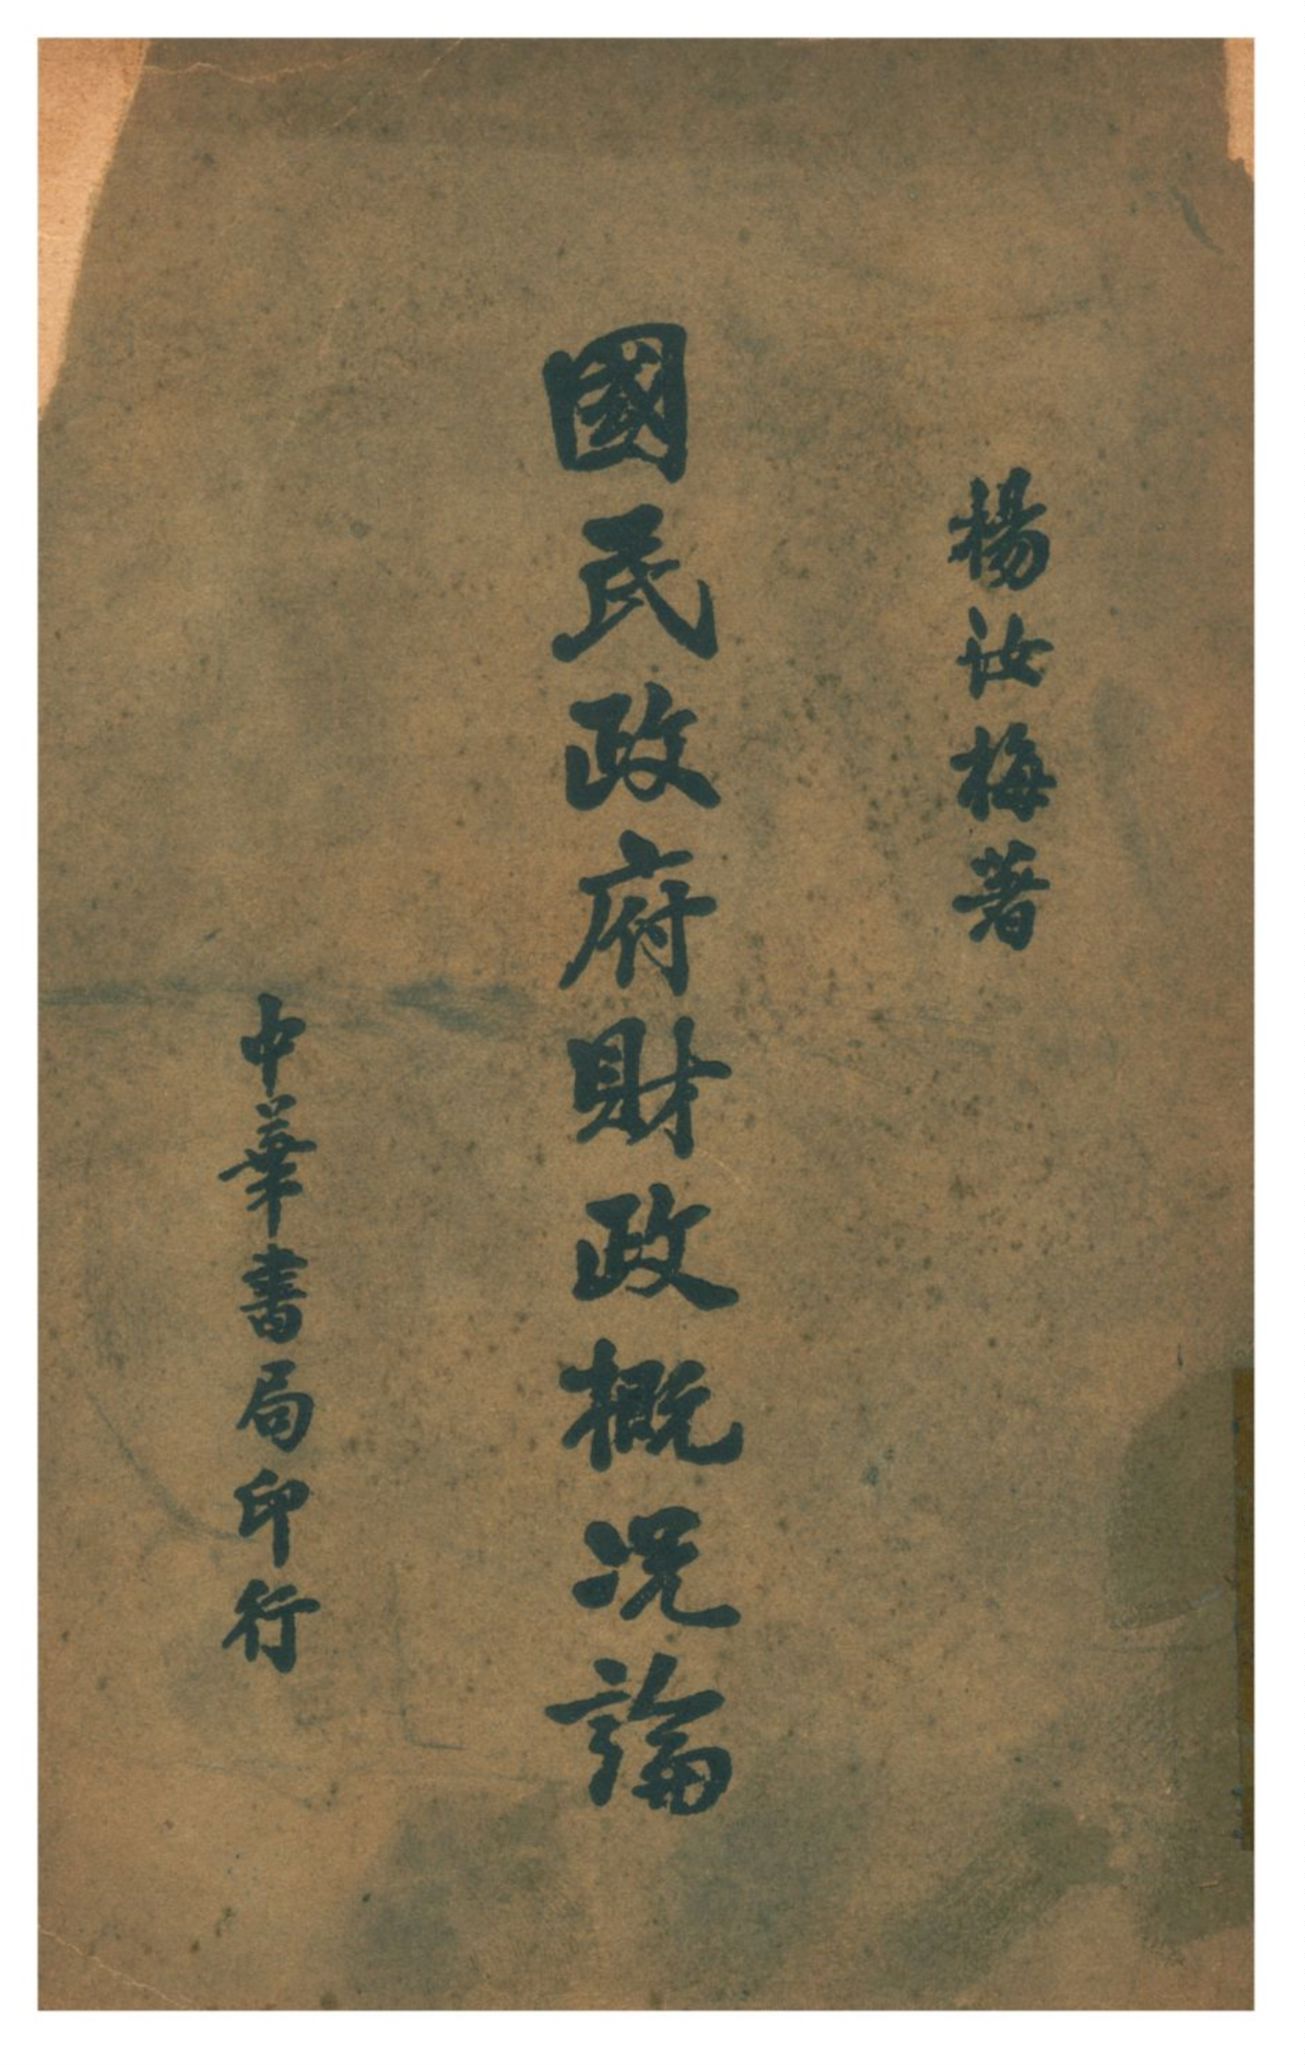 楊汝梅著
國民政府財政概况論
中華書局印行